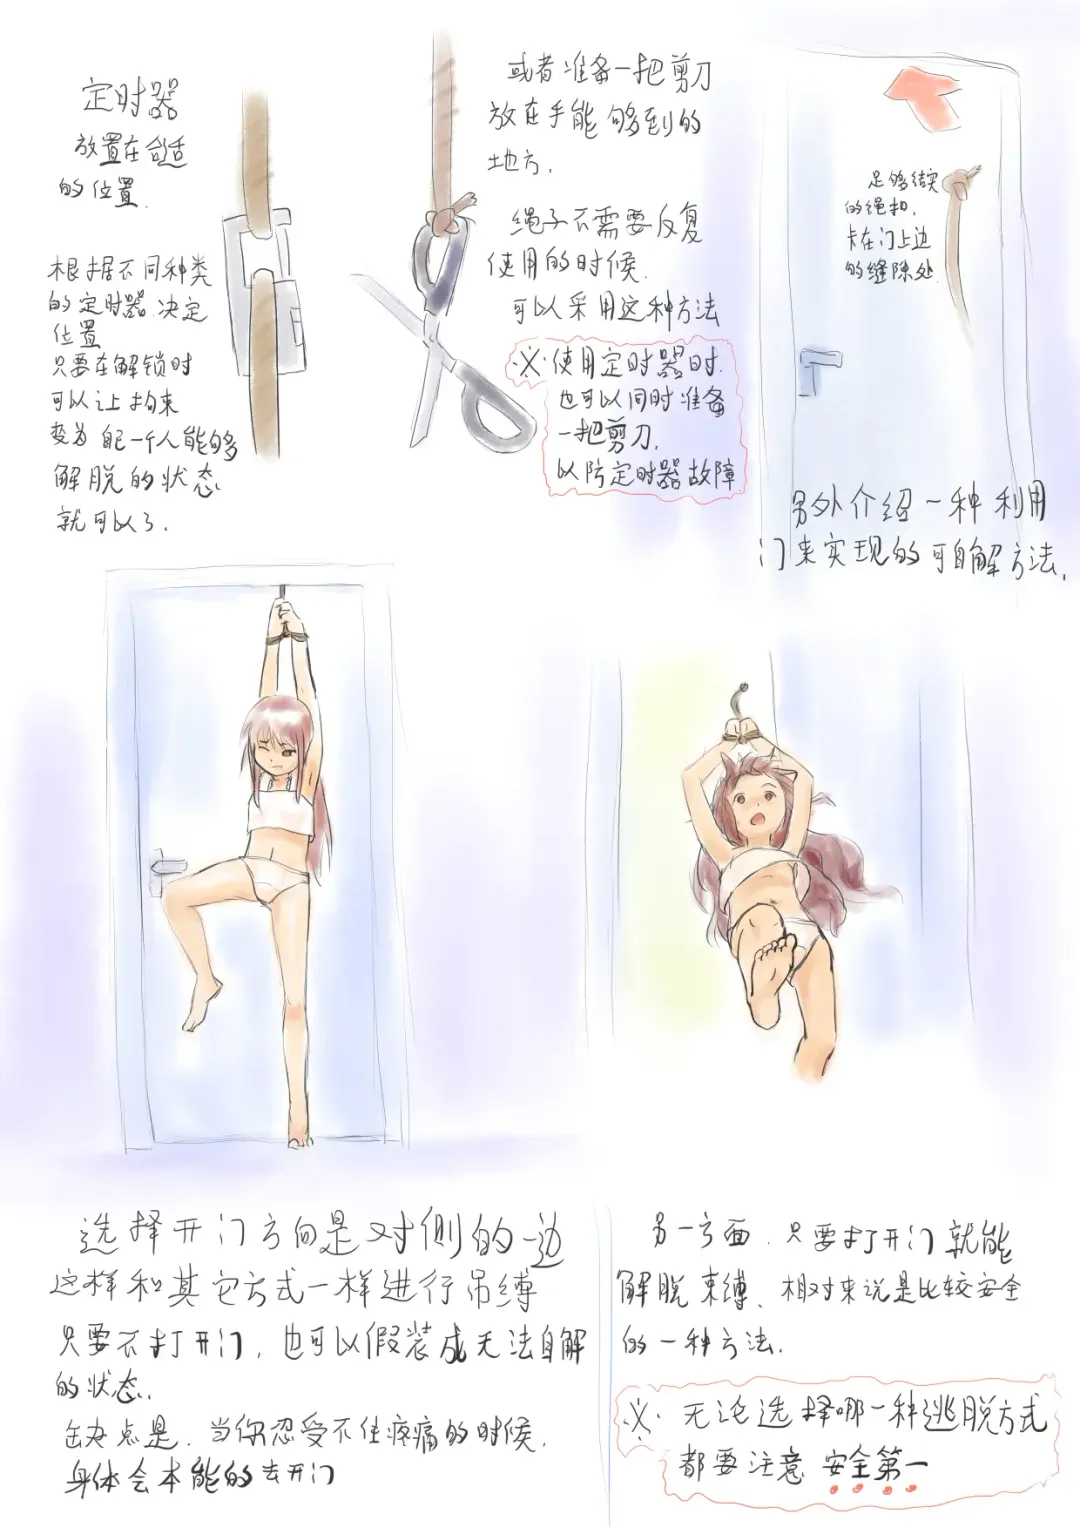 定时器
放置在合适
的位置.
根据不同种类
的定时器决定
位置
只要在解锁时
可以让拘束
变为自己一个人能够
解脱的状态
就可以了.
或者准备一把剪刀
放在手能够到的
地方.
绳子不需要反复
使用的时候.
可以采用这种方法
※.使用定时器时.
也可以同时准备
一把剪刀.
以防定时器故障
足够结实
的绳扣.
卡在门上边
的缝隙处
另外介绍一种利用
门来实现的可自解方法.
选择开门方向是对侧的一边
这样和其它方式一样进行吊缚
只要不打开门.也可以假装成无法自解
的状态.
缺点是.当你忍受不住疼痛的时候.
身体会本能的去开门
另一方面.只要打开门就能
解脱束缚、相对来说是比较安全
的一种方法.
※.无论选择哪一种逃脱方式
都要注意 安全第一